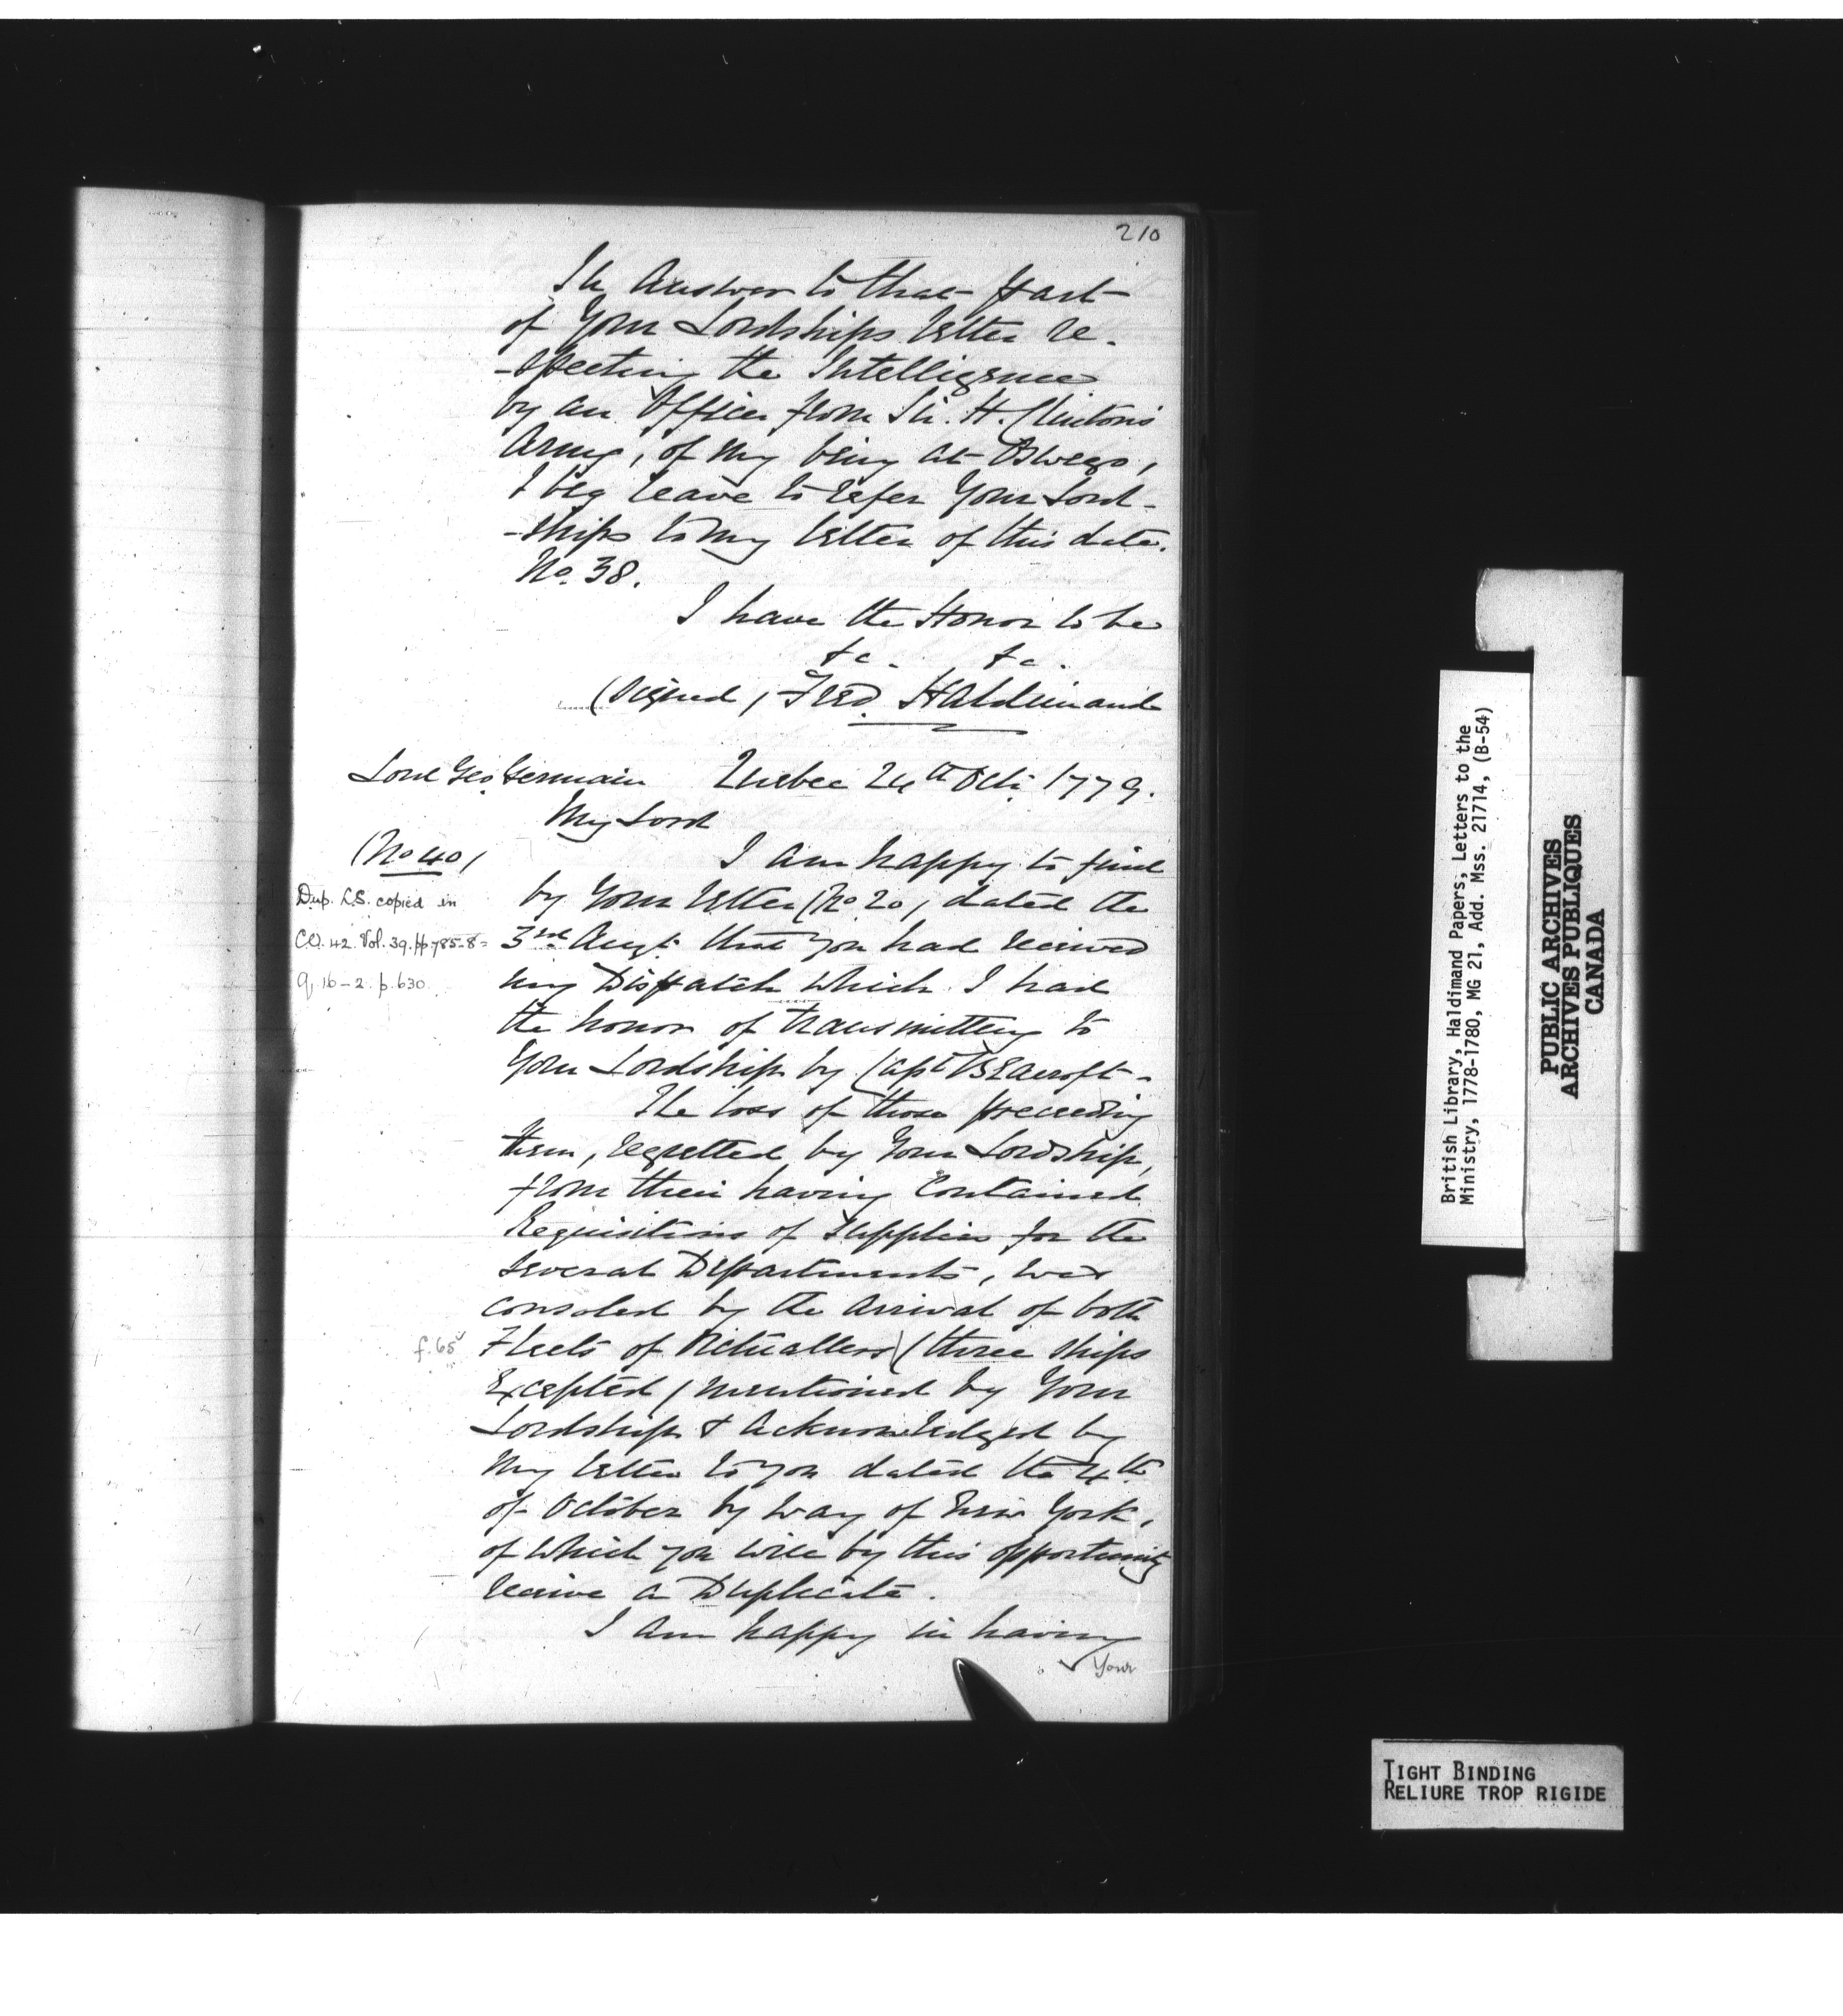 210
In Answer to that Part
of Your Lordships letter re-
-specting the Intelligence
by an Officer from Sir. H. Clinton's
Army, of my being at Oswego,
I beg leave to refer Your Lord-
-ships to my letter of this date.
No. 38.
I have the Honor to be
&c. &c.
(signed) Fred. Haldimand
Lord Geo. Germain Quebec 24th Octr. 1779.
My Lord
(No 40)
I am happy to find
by Your letter (No 20) dated the
3rd Augt. that you had received
my Dispatch which I had
the honor of transmitting to
Your Lordship by Capt Bearcroft-
The loss of those preceeding
them, regretted by Your Lordship,
from their having Contained
Requisitions of supplies for the
several Departments, was
consoled by the arrival of both
Fleets of Victuallers (three ships
Excepted) mentioned by Your
Lordship & acknowledged by
my letter to you dated the 4th
of October by way of New York,
of which you will by this opportunity
receive a Duplicate.
I am happy in having
Your
Dup. L.S. copied in
CO. 42 Vol. 39. pp 785-8=
Q, 16-2. p. 630.
f. 65v
British Library, Haldimand Papers, Letters to the
Ministry, 1778-1780, MG 21, Add. Mss. 21714, (B-54)
PUBLIC ARCHIVES
ARCHIVES PUBLIQUES
CANADA
TIGHT BINDING
RELIURE TROP RIGIDE